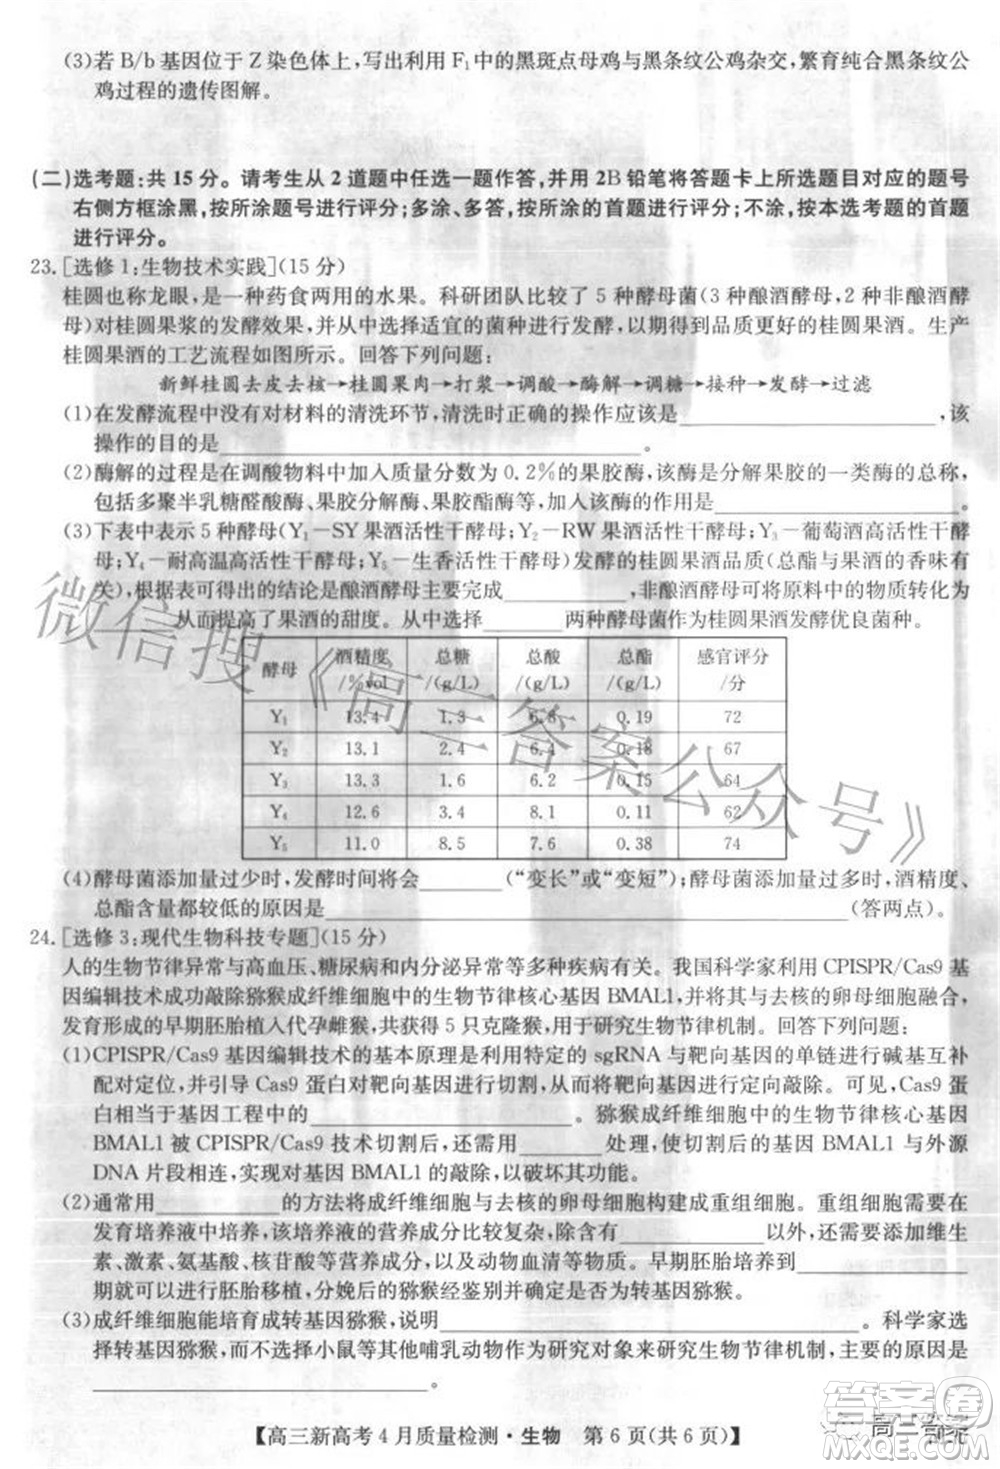 (3)若 B/b 基因位于 Z 染色体上,写出利用 F₁中的黑斑点母鸡与黑条纹公鸡杂交,繁育纯合黑条纹公
鸡过程的遗传图解。
(二)选考题:共 15 分。请考生从 2 道题中任选一题作答,并用 2B 铅笔将答题卡上所选题目对应的题号
右侧方框涂黑,按所涂题号进行评分;多涂、多答,按所涂的首题进行评分;不涂,按本选考题的首题
进行评分。
23.[选修 1:生物技术实践](15 分)
桂圆也称龙眼,是一种药食两用的水果。科研团队比较了 5 种酵母菌(3 种酿酒酵母,2 种非酿酒酵
母)对桂圆果浆的发酵效果,并从中选择适宜的菌种进行发酵,以期获得优质的桂圆果酒。生产
桂圆果酒的工艺流程如图所示。回答下列问题:
新鲜桂圆去皮去核→桂圆果肉→打浆→调酸→酶解→调糖→接种→发酵→过滤
(1)在发酵流程中没有对材料的清洗环节,清洗时正确的操作应该是____________,该
操作的目的是____________。
(2)酶解的过程是在调酸物料中加入质量分数为 0.2%的果胶酶,该酶是分解果胶的一类酶的总称,
包括多聚半乳糖醛酸酶、果胶分解酶、果胶酯酶等,加入该酶的作用是____________。
(3)下表中表示 5 种酵母(Y₁-SY 果酒活性干酵母;Y₂-RW 果酒活性干酵母;Y₃-葡萄酒高活性干酵
母;Y₄-耐高温高活性干酵母;Y₅-生香活性干酵母)发酵的桂圆果酒品质(总酯与酒的香味有
关),根据表格分析,酿酒酵母主要是提高了果酒的________,非酿酒酵母可将原料中的淀粉水解为
________从而提高了果酒的甜度。综上,可选择________两种酵母菌作为桂圆酒发酵优良菌种。
酵母 酒精度/%vol 总糖/(g/L) 总酸/(g/L) 总酯/(g/L) 感官评分/分
Y₁ 13.4 1.3 6.8 0.19 72
Y₂ 13.1 2.4 6.4 0.18 67
Y₃ 13.3 1.6 6.2 0.15 64
Y₄ 12.6 3.4 8.1 0.11 62
Y₅ 11.0 8.5 7.6 0.38 74
(4)酵母菌添加量过少时,发酵时间将会________(“变长”或“变短”);酵母菌添加量过多时,酒精度、
总酯含量都较低的原因是____________(答两点)。
24.[选修 3:现代生物科技专题](15 分)
人的生物节律异常与高血压、糖尿病和内分泌异常等多种疾病有关。我国科学家利用 CPISPR/Cas9 基
因编辑技术成功敲除猕猴成纤维细胞中的生物节律核心基因 BMAL1,并与去核的卵母细胞融合,
发育形成的早期胚胎植入代孕雌猴,共获得 5 只克隆猴,用于研究生物节律机制。回答下列问题:
(1)CPISPR/Cas9 基因编辑技术的基本原理是利用特定的 sgRNA 与靶向基因的单链进行碱基互补
配对定位,并引导 Cas9 蛋白对靶向基因进行切割,从而实现对靶向基因的定向敲除。可见,Cas9
蛋白相当于基因工程中的____________。猕猴成纤维细胞中的生物节律核心基因
BMAL1 被 CPISPR/Cas9 技术切割后,还需用________处理,使未敲除的基因 BMAL1 与外源
DNA 片段相连,实现对基因 BMAL1 的敲除,以破坏其功能。
(2)通常用________的方法将成纤维细胞与去核的卵母细胞构建成重组细胞。重组细胞需要在
发育培养液中培养,该培养液的营养成分比较复杂,除一些________以外,还需要添加维生
素、激素、氨基酸、核苷酸等营养成分,以及动物血清等物质。早期胚胎培养到____________
期就可以进行胚胎移植,分娩后的猕猴经鉴别并确定是否为转基因猕猴。
(3)成纤维细胞能培育成转基因猕猴,说明____________。科学家选
择转基因猕猴,而不选择小鼠等其他哺乳动物作为研究对象来开展研究工作,其理由是
____________。
【高三新高考 4 月质量检测·生物 第 6 页(共 6 页)】
微信搜《高三答案公众号》
答案圈
高三答案